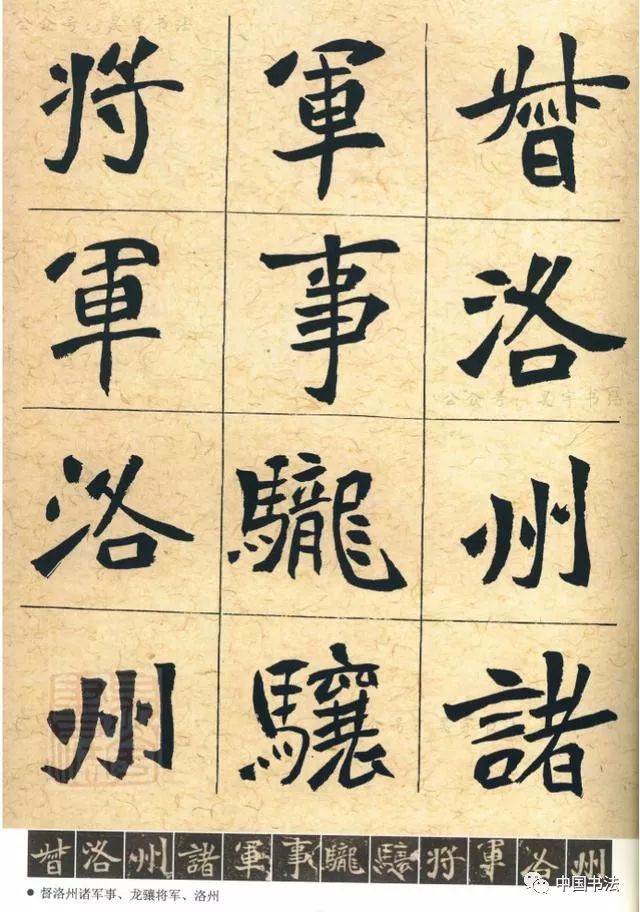 公众号 书法
督洛州諸
軍事䮾驤
将軍洛州
督洛州諸軍事䮾驤将軍洛州
● 督洛州诸军事、龙骧将军、洛州
中国书法